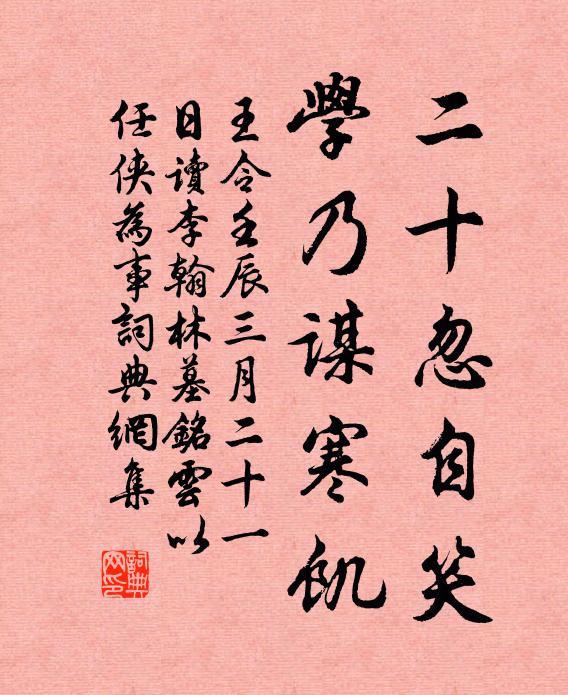 二十忽自笑
學乃謀寒飢
王令壬辰三月二十一
日讀李翰林墓銘雲以
任俠為事詞典網集
詞典網印